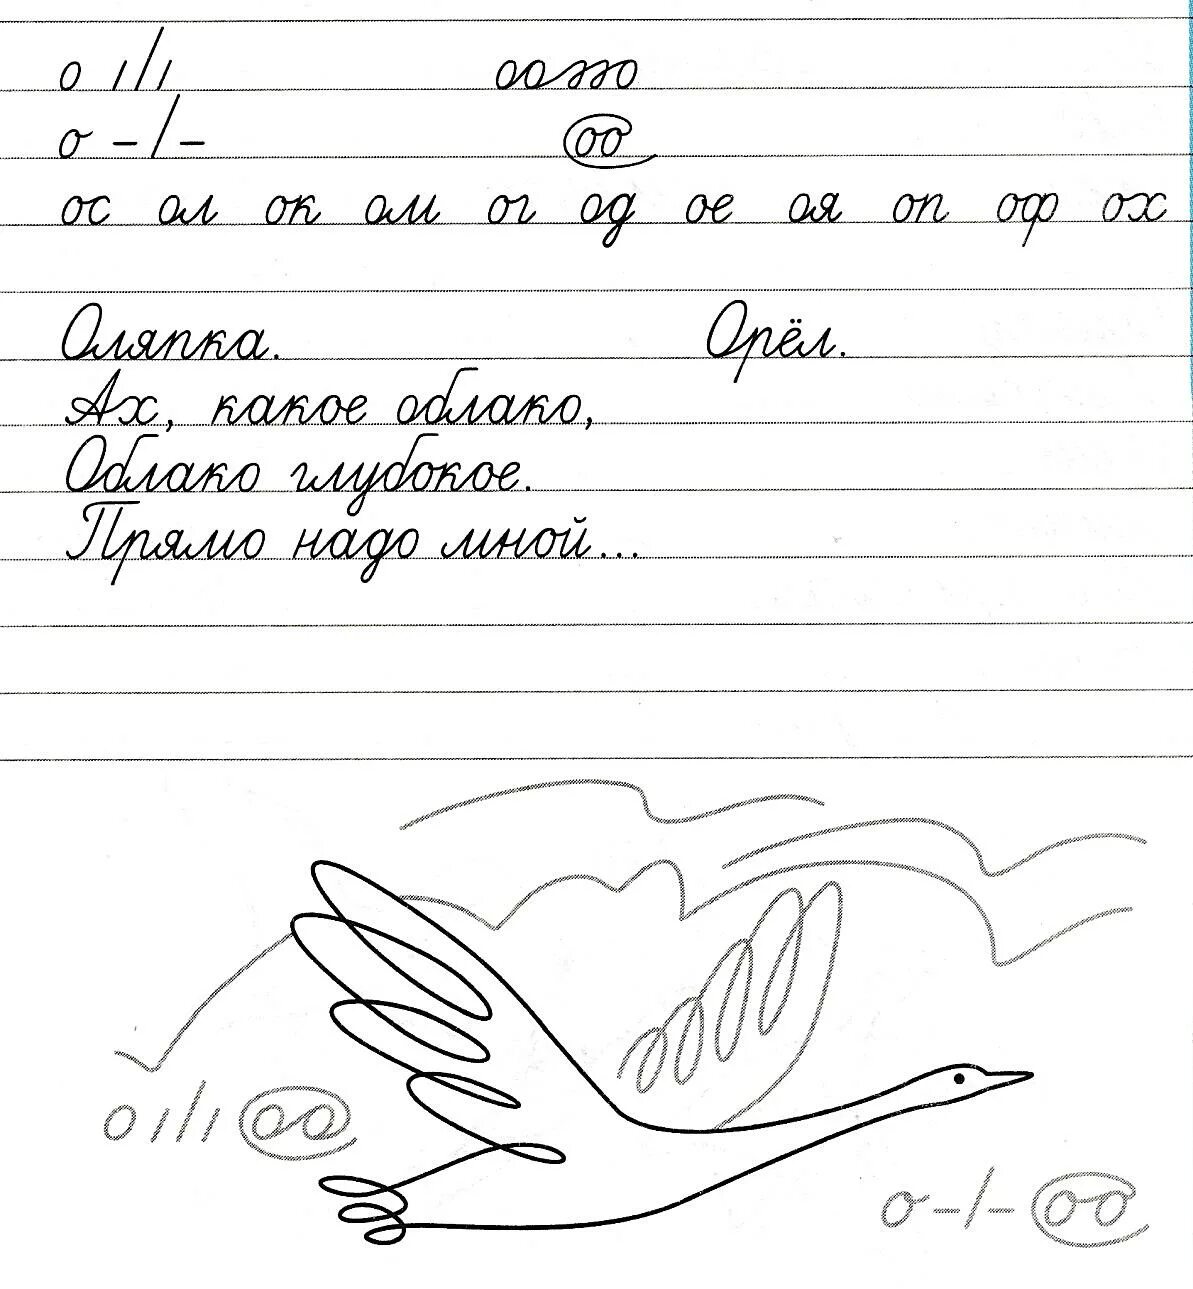 о ı/ı
о -/- оо
ос ол ок ом ог од ое оя оп оф ох
Оляпка. Орёл.
Ах, какое облако,
Облако глубокое.
Прямо надо мной...
о ı/ı оо
о -/- оо